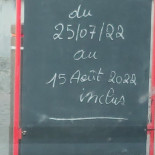 du
25/07/22
au
15 Août 2022
inclus